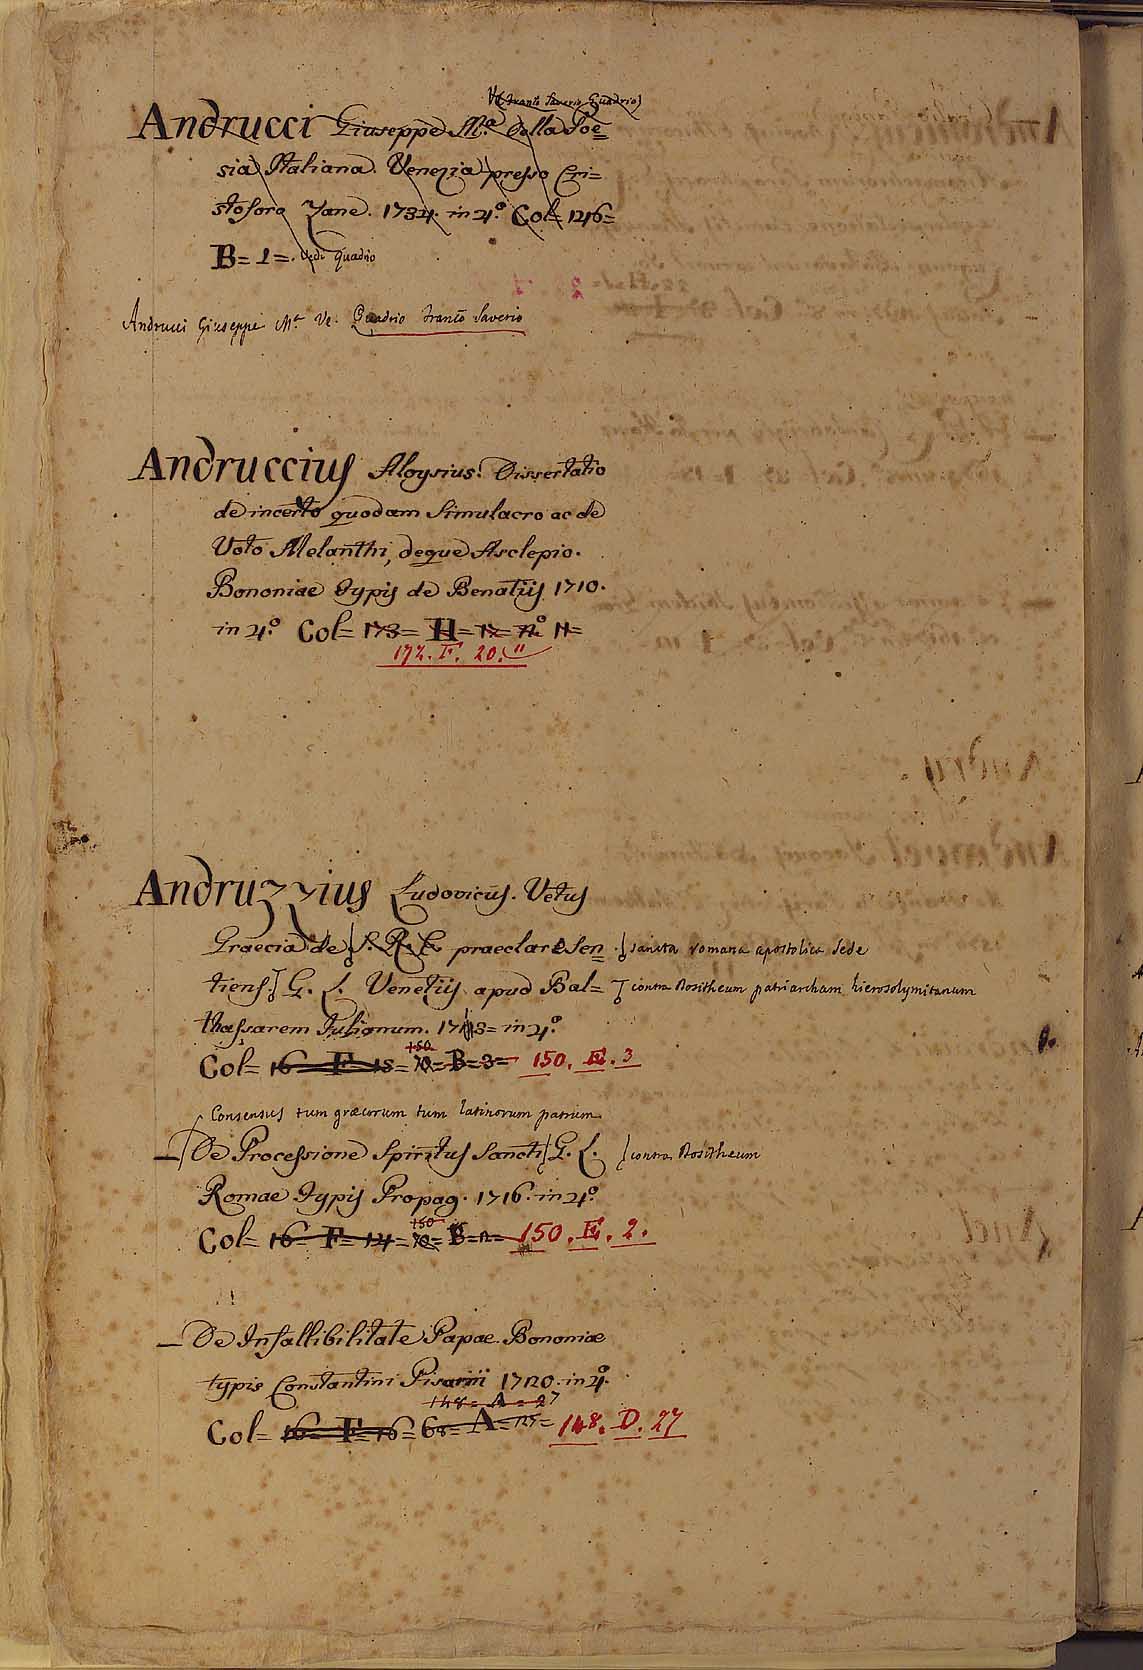 Ve Franco Saverio Quadrio
Andrucci Giuseppe M.ª Della Poe=
sia Italiana. Venezia presso Cri=
stoforo Zane. 1734. in 4.º Col= 146=
B= 1=. vedi Quadrio
Andrucci Giuseppe M.ª Ve. Quadrio Franco Saverio
Andruccius Aloysius. Dissertatio
de incerto quodam Simulacro ac de
Voto Melanthi, deque Asclepio.
Bononiae typis de Benatijs 1710.
in 4.º Col= 173= H= 12= n.º 11=
172. F. 20. "
Andruzzius Ludovicus. Vetus
Graecia de S. R. E. praeclare Sen= sancta romana apostolica sede
tiens. G. L. Venetijs apud Bal= contra Dositheum patriarcham hierosolymitanum
thassarem Julianum. 1713= in 4.º
150
Col= 16 F= 15= B= 3= 150. E. 3
Consensus tum græcorum tum latinorum patrum
— De Processione Spiritus Sancti G. L. contra Dositheum
Romae typis Propag. 1716. in 4.º
150
Col= 16= F= 14= B= 150. E. 2.
— De Infallibilitate Papae. Bononiae
typis Constantini Pisarrii 1720. in 4.º
148= A= 27
Col= 16= F= 16= 68= A= 148. D. 27